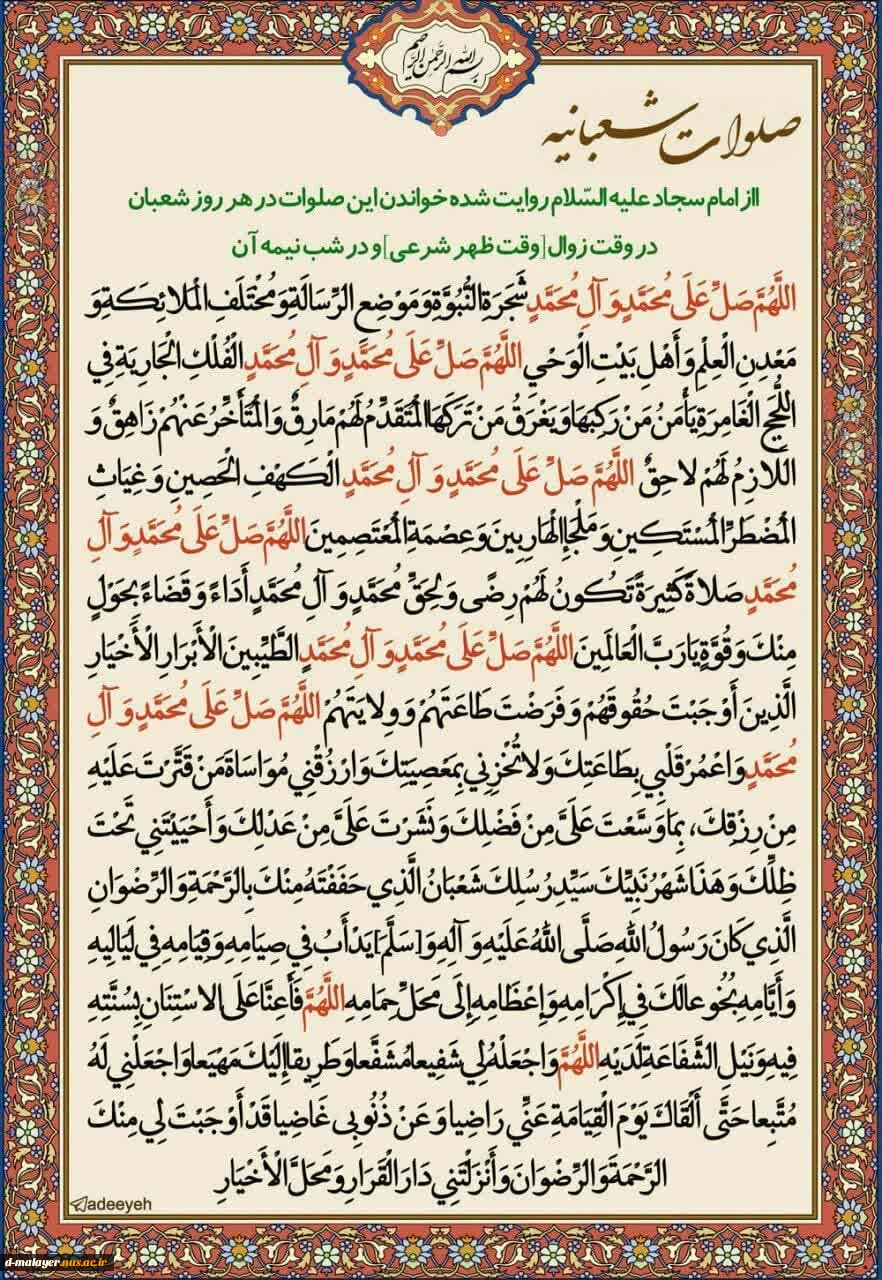 بسم الله الرحمن الرحیم
صلوات شعبانیه
ااز امام سجاد علیه السّلام روایت شده خواندن این صلوات در هر روز شعبان
در وقت زوال [وقت ظهر شرعی] و در شب نیمه آن
اللَّهُمَّ صَلِّ عَلَى مُحَمَّدٍ وَ آلِ مُحَمَّدٍ شَجَرَةِ النُّبُوَّةِ وَ مَوْضِعِ الرِّسَالَةِ وَ مُخْتَلَفِ الْمَلائِكَةِ وَ
مَعْدِنِ الْعِلْمِ وَ أَهْلِ بَيْتِ الْوَحْيِ اللَّهُمَّ صَلِّ عَلَى مُحَمَّدٍ وَ آلِ مُحَمَّدٍ الْفُلْكِ الْجَارِيَةِ فِي
اللُّجَجِ الْغَامِرَةِ يَأْمَنُ مَنْ رَكِبَهَا وَ يَغْرَقُ مَنْ تَرَكَهَا الْمُتَقَدِّمُ لَهُمْ مَارِقٌ وَ الْمُتَأَخِّرُ عَنْهُمْ زَاهِقٌ وَ
اللازِمُ لَهُمْ لاحِقٌ اللَّهُمَّ صَلِّ عَلَى مُحَمَّدٍ وَ آلِ مُحَمَّدٍ الْكَهْفِ الْحَصِينِ وَ غِيَاثِ
الْمُضْطَرِّ الْمُسْتَكِينِ وَ مَلْجَإِ الْهَارِبِينَ وَ عِصْمَةِ الْمُعْتَصِمِينَ اللَّهُمَّ صَلِّ عَلَى مُحَمَّدٍ وَ آلِ
مُحَمَّدٍ صَلاةً كَثِيرَةً تَكُونُ لَهُمْ رِضًى وَ لِحَقِّ مُحَمَّدٍ وَ آلِ مُحَمَّدٍ أَدَاءً وَ قَضَاءً بِحَوْلٍ
مِنْكَ وَ قُوَّةٍ يَا رَبَّ الْعَالَمِينَ اللَّهُمَّ صَلِّ عَلَى مُحَمَّدٍ وَ آلِ مُحَمَّدٍ الطَّيِّبِينَ الْأَبْرَارِ الْأَخْيَارِ
الَّذِينَ أَوْجَبْتَ حُقُوقَهُمْ وَ فَرَضْتَ طَاعَتَهُمْ وَ وِلايَتَهُمْ اللَّهُمَّ صَلِّ عَلَى مُحَمَّدٍ وَ آلِ
مُحَمَّدٍ وَ اعْمُرْ قَلْبِي بِطَاعَتِكَ وَ لا تُخْزِنِي بِمَعْصِيَتِكَ وَ ارْزُقْنِي مُوَاسَاةَ مَنْ قَتَّرْتَ عَلَيْهِ
مِنْ رِزْقِكَ، بِمَا وَسَّعْتَ عَلَيَّ مِنْ فَضْلِكَ وَ نَشَرْتَ عَلَيَّ مِنْ عَدْلِكَ وَ أَحْيَيْتَنِي تَحْتَ
ظِلِّكَ وَ هَذَا شَهْرُ نَبِيِّكَ سَيِّدِ رُسُلِكَ شَعْبَانُ الَّذِي حَفَفْتَهُ مِنْكَ بِالرَّحْمَةِ وَ الرِّضْوَانِ
الَّذِي كَانَ رَسُولُ اللهِ صَلَّى اللهُ عَلَيْهِ وَ آلِهِ وَ [سَلَّمَ] يَدْأَبُ فِي صِيَامِهِ وَ قِيَامِهِ فِي لَيَالِيهِ
وَ أَيَّامِهِ بُخُوعا لَكَ فِي إِكْرَامِهِ وَ إِعْظَامِهِ إِلَى مَحَلِّ حِمَامِهِ اللَّهُمَّ فَأَعِنَّا عَلَى الاسْتِنَانِ بِسُنَّتِهِ
فِيهِ وَ نَيْلِ الشَّفَاعَةِ لَدَيْهِ اللَّهُمَّ وَ اجْعَلْهُ لِي شَفِيعا مُشَفَّعا وَ طَرِيقا إِلَيْكَ مَهْيَعا وَ اجْعَلْنِي لَهُ
مُتَّبِعا حَتَّى أَلْقَاكَ يَوْمَ الْقِيَامَةِ عَنِّي رَاضِيا وَ عَنْ ذُنُوبِي غَاضِيا قَدْ أَوْجَبْتَ لِي مِنْكَ
الرَّحْمَةَ وَ الرِّضْوَانَ وَ أَنْزَلْتَنِي دَارَ الْقَرَارِ وَ مَحَلَّ الْأَخْيَارِ
adeeyeh
d-malayer.nus.ac.ir